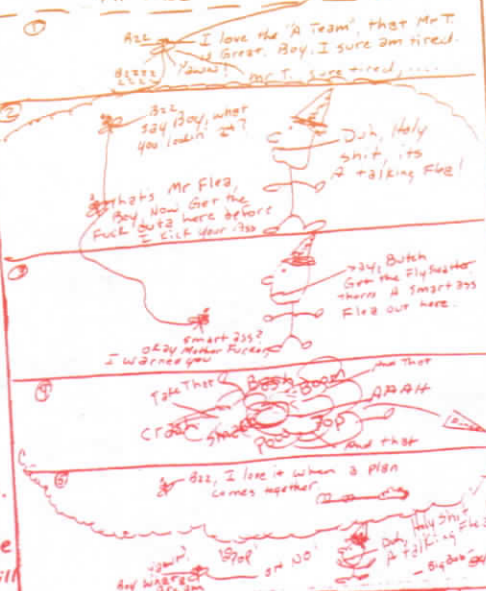 ①
Bzz
I love the "A Team", that Mr T.
is Great. Boy, I sure am tired.
Bzzzz
Yawn!
Mr T. sure tired,....
zzzz
②
Bzz
Say, Boy, what
you lookin at?
Duh, Holy
shit, its
A talking Flea!
Thats Mr Flea,
Boy, Now Get the
Fuck outa here before
I kick your ass
③
Say, Butch
Get the FlySwatter
theres A Smart ass
Flea out here.
Smart ass?
okay Mother Fucker
I warned you
④
Take That
Bash
Boom
And That
AAAH
Crash
Smack
Pow
Pop
And that
⑤
Bzz, I love it when a plan
comes together
Yawn!
Boy what a
dream
Oh NO
Duh, Holy Shit
A talking Flea